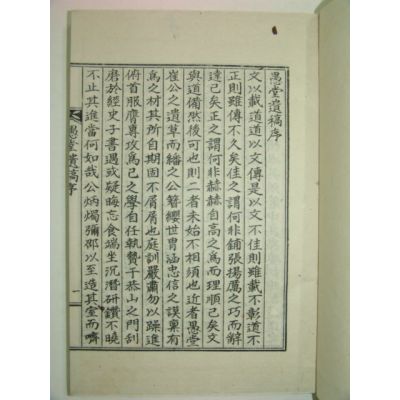 愚堂遺稿序
文以載道道以文傳是以文不佳則雖載不彰道不
正則雖傳不久矣佳之謂何非鋪張揚厲之巧而辭
達已矣正之謂何非赫赫自高之爲而理順已矣文
與道備然後可也則二者未始不相須也近者愚堂
崔公之遺草而繙之公簪纓世冑涵忠信之謨稟有
爲之材其所自期固不屑屑也庭訓嚴肅勿以躁進
俯首服膺專攻爲己之學自任執贄于菾山之門刮
磨於經史子書遇或疑晦忘食端坐沉潛研鑽不曉
不止其進當何如哉公炳燭彌邵以至造其室而嚌
愚堂遺稿序
一